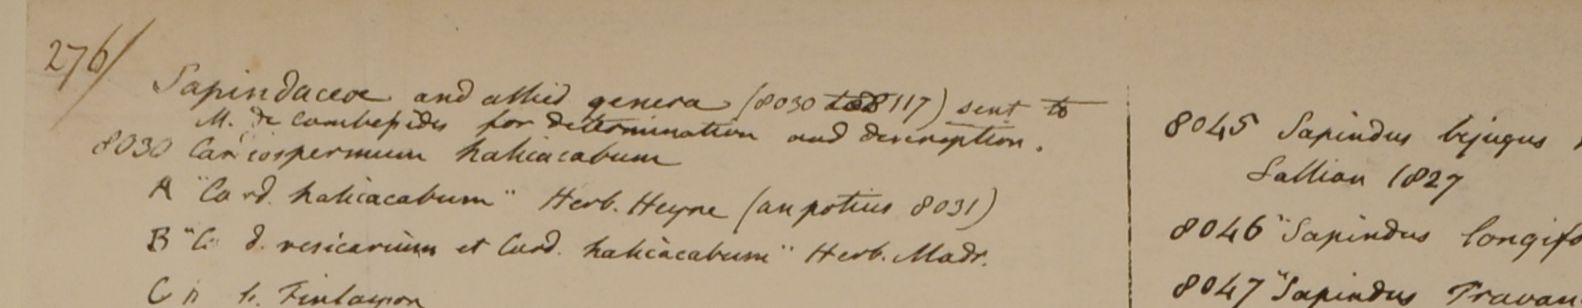 276/
Sapindaceae and allied genera (8030 to 8117) sent to
M. de Cambessides for determination and description.
8030 Cardiospermum halicacabum
A "Card. halicacabum" Herb. Heyne (an potius 8031)
B "C d. vesicarium et Card. halicacabum" Herb. Madr.
C Finlayson
8045 Sapindus bijugus
Sallian 1827
8046 "Sapindus longifo
8047 "Sapindus Travan